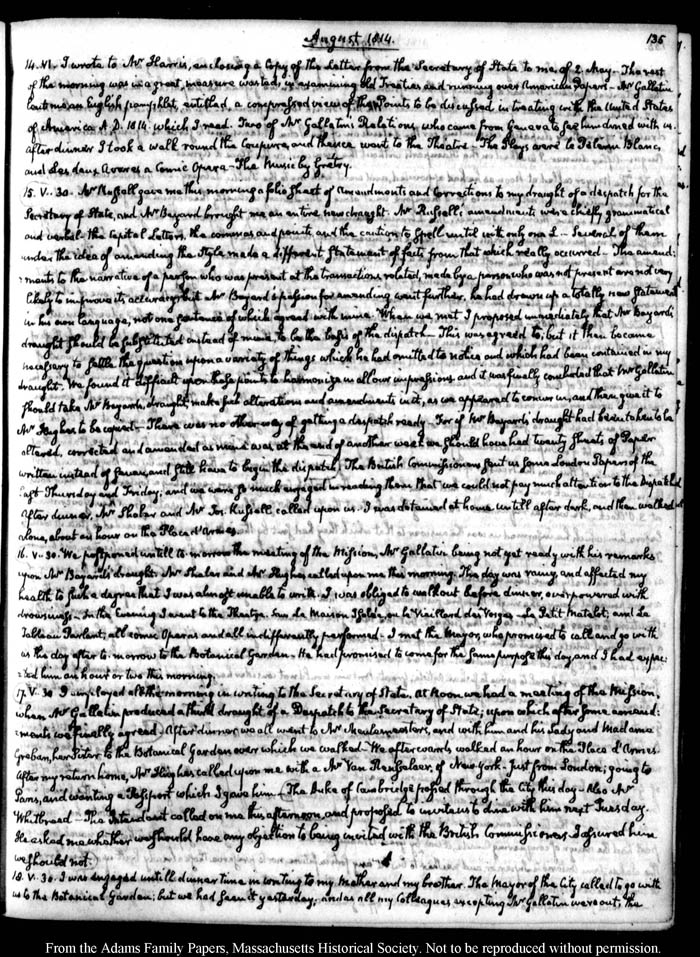 August 1814.
136
14. VI. I wrote to Mr Harris, enclosing a Copy of the Letter from the Secretary of State to me, of 2 May. The rest
of the morning was in a great measure wasted, in examining old Treaties and running over American Papers — Mr Gallatin
lent me an English pamphlet, entitled a compressed view of the Points to be discussed in treating with the United States
of America A.D. 1814. which I read. Two of Mr Gallatin's Relations, who came from Geneva to see him dined with us.
after dinner I took a walk round the Coupure, and thence went to the Theatre — The Plays were le Pèlerin Blanc,
and Les deux Avares a Comic Opera — The Music by Gretry.
15. V. 30. Mr Russell gave me this morning a folio sheet of amendments and corrections to my draught of a despatch for the
Secretary of State, and Mr Bayard brought me an entire new draught. Mr Russell's amendments were chiefly grammatical
and verbal — the Capital Letters, the commas and points, and the caution to spell until with only one l — Several of them
under the idea of amending the Style made a different Statement of facts from that which really occurred — The amend:
:ments to the narrative of a person who was present at the transactions related, made by a person who was not present are not very
likely to improve its accuracy; but Mr Bayard's passion for amending went further, he had drawn up a totally new statement
in his own language, not one sentence of which agreed with mine. When we met I proposed immediately that Mr Bayard's
draught should be substituted instead of mine, to be the basis of the dispatch — This was agreed to, but it then became
necessary to settle the question upon a variety of things which he had omitted to notice and which had been contained in my
draught. We found it difficult upon these points to harmonize in all our impressions and it was finally concluded that Mr Gallatin
should take Mr Bayard's draught, make such alterations and amendments in it, as we appeared to concur in, and then give it to
Mr Hughes to be copied — There was no other way of getting a despatch ready — For if Mr Bayard's draught had been taken to be
altered, corrected and amended as mine was, at the end of another week we should have had twenty sheets of Paper
written instead of seven, and still have to begin the dispatch. The British Commissioners sent us some London Papers of the
last Thursday and Friday; and we were so much engaged in reading them that we could not pay much attention to the Dispatched
After dinner, Mr Shaler and Mr Jos. Russell called upon us. I was detained at home untill after dark, and then walked
alone, about an hour on the Place d'Armes.
16. V. 30. We postponed untill to-morrow the meeting of the Mission, Mr Gallatin being not yet ready with his remarks
upon Mr Bayard's draught. Mr Shaler and Mr Hughes called upon me this morning. The day was rainy, and affected my
health to such a degree that I was almost unable to write. I was obliged to walk out before dinner, overpowered with
drowsiness — In the Evening I went to the Theatre. Saw La Maison Isolée, ou le Vieillard des Vosges — Le Petit Matelot, and Le
Tableau Parlant, all comic Operas and all indifferently performed — I met the Mayor, who promised to call and go with
us the day after to-morrow to the Botanical Garden — He had promised to come for the same purpose this day, and I had expec:
:ted him an hour or two this morning.
17. V. 30 I employed all the morning in writing to the Secretary of State. At Noon we had a meeting of the Mission,
when Mr Gallatin produced a third draught of a Despatch to the Secretary of State; upon which after some amend:
:ments we finally agreed. After dinner we all went to Mr Meulemeester's, and with him and his Lady and Madame
Greban, her Sister to the Botanical Garden over which we walked — We afterwards walked an hour on the Place d'Armes.
After my return home, Mr Hughes called upon me with a Mr Van Rensselaer, of New York. just from London; going to
Paris, and wanting a Passport which I gave him. The Duke of Cambridge passed through the City this day — Also Mr
Whitbread — The Intendant called on me this afternoon, and proposed to invite us to dine with him next Tuesday.
He asked me whether we should have any objection to being invited with the British Commissioners. I assured him
we should not.
18. V. 30. I was engaged untill dinner time in writing to my Mother and my brother. The Mayor of the City called to go with
us to the Botanical Garden; but we had seen it yesterday; and as all my Colleagues excepting Mr Gallatin were out, the
From the Adams Family Papers, Massachusetts Historical Society. Not to be reproduced without permission.